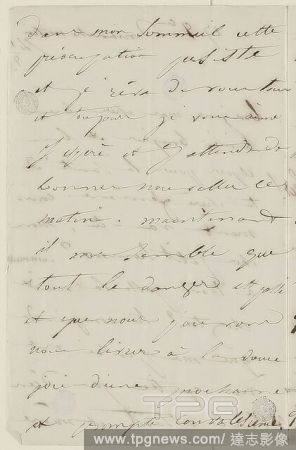 Dans mon sommeil cette
préoccupation persiste
et je rêva de vous tous
et toujours je
J'espère et j'attends de
bonnes nouvelles ce
matin. maintenant
il me semble que
tout le danger est passé
et que nous pouvons
nous livrer à la douce
joie d'une prochaine
et prompte convalescence
TPG
www.tpgnews.com / 達志影像